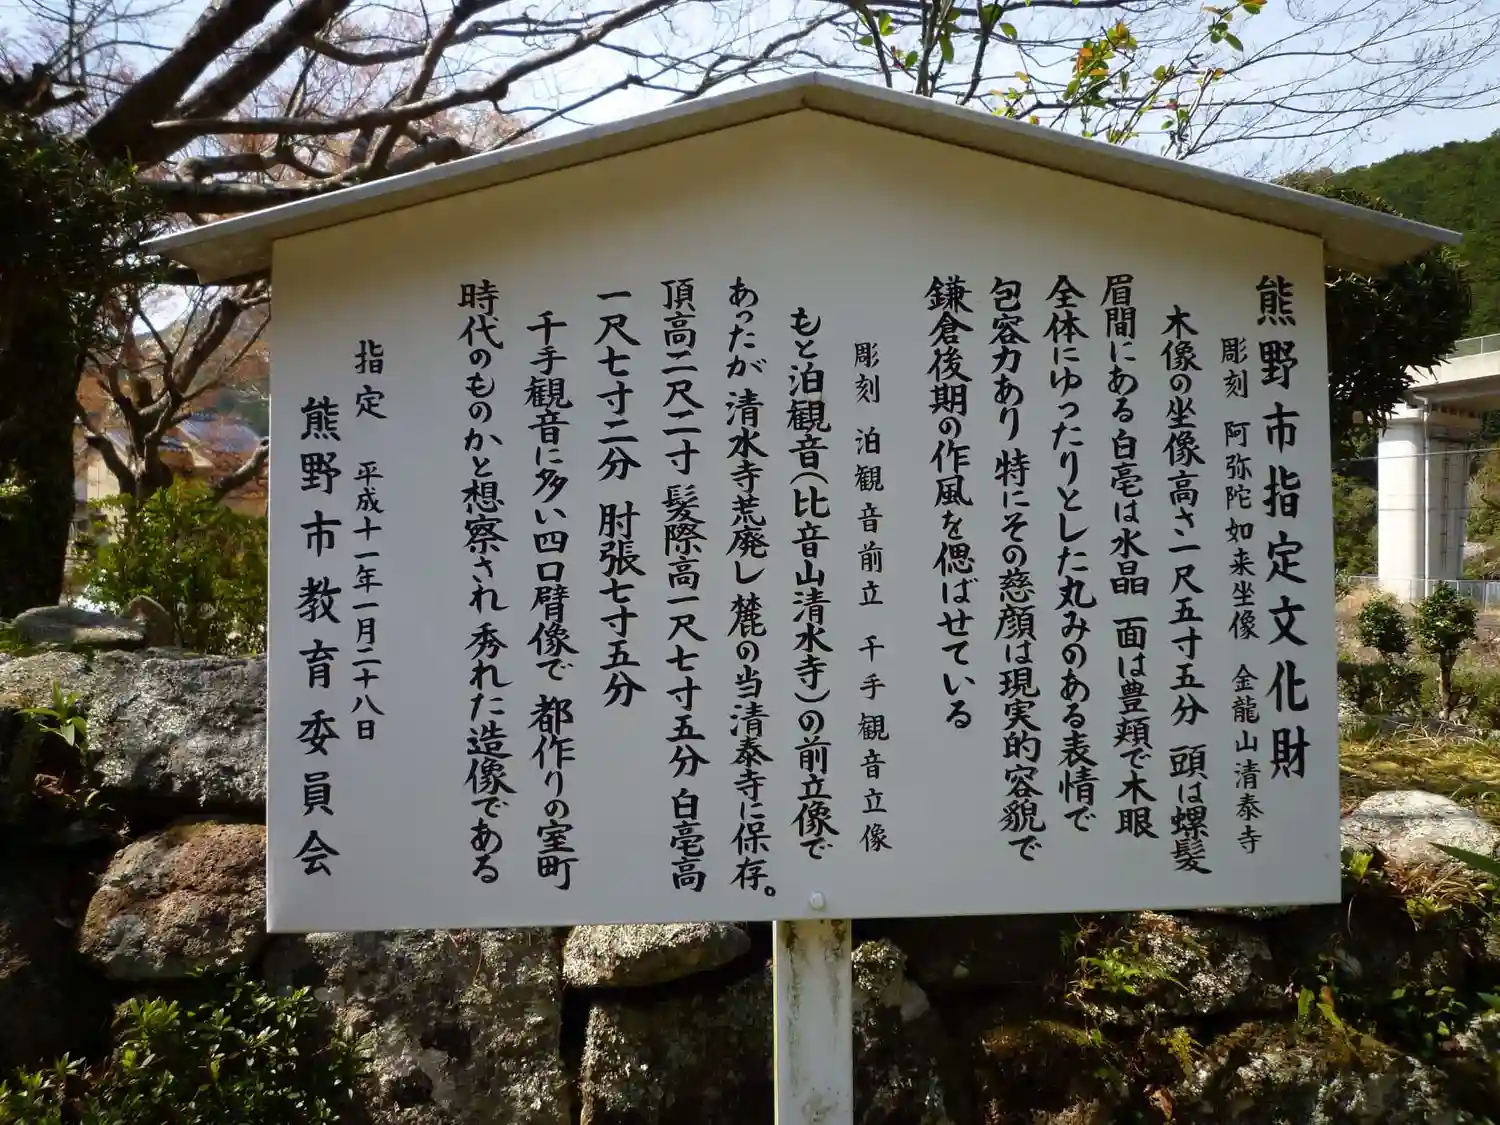 熊野市指定文化財
彫刻 阿弥陀如来坐像 金龍山清泰寺
木像の坐像高さ一尺五寸五分 頭は螺髪
眉間にある白毫は水晶 面は豊頬で木眼
全体にゆったりとした丸みのある表情で
包容力あり 特にその慈顔は現実的容貌で
鎌倉後期の作風を偲ばせている
彫刻 泊観音前立 千手観音立像
もと泊観音(比音山清水寺)の前立像で
あったが 清水寺荒廃し麓の当清泰寺に保存。
頂高二尺二寸 髪際高一尺七寸五分 白毫高
一尺七寸二分 肘張七寸五分
千手観音に多い四口臂像で 都作りの室町
時代のものかと想察され 秀れた造像である
指定 平成十一年一月二十八日
熊野市教育委員会